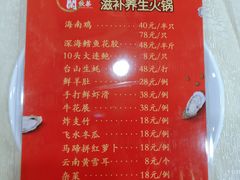 滋补养生火锅
海南鸡 40元/半只
78元/只
深海鳕鱼花胶 48元/半斤
10头大连鲍 8元/个
台山生蚝 48元/打
鲜羊肚 28元/例
手打鲜虾滑 38元/例
牛花展 38元/例
炸支竹 18元/例
飞水冬瓜 18元/例
马蹄拼红萝卜 18元/例
云南黄雪耳 8元/个
杂菜 18元/例